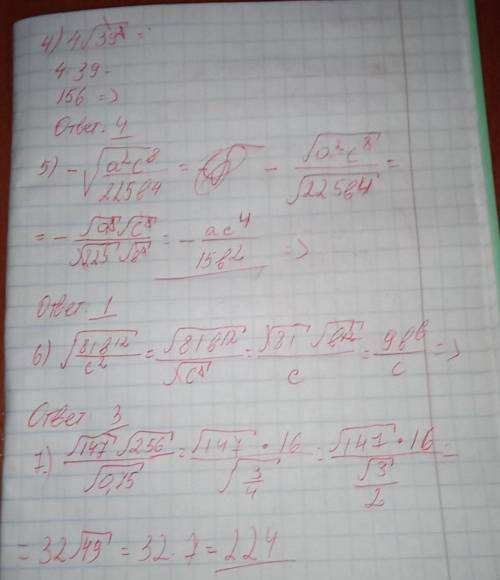 4) 4√39² =
4·39=
156 =>
Ответ. 4
5) -√(a²c⁸/225b⁴) = - √(a²c⁸)/√(225b⁴) =
= - √a²√c⁸/√225√b⁴ = - ac⁴/15b² =>
Ответ. 1
6) √(81b¹²/c²) = √(81b¹²)/√c² = √81 √b¹²/c = 9b⁶/c =>
Ответ 3
7.) √147 √256/√0,75 = √147 · 16/√(3/4) = √147 · 16/(√3/2) =
= 32√49 = 32·7 = 224